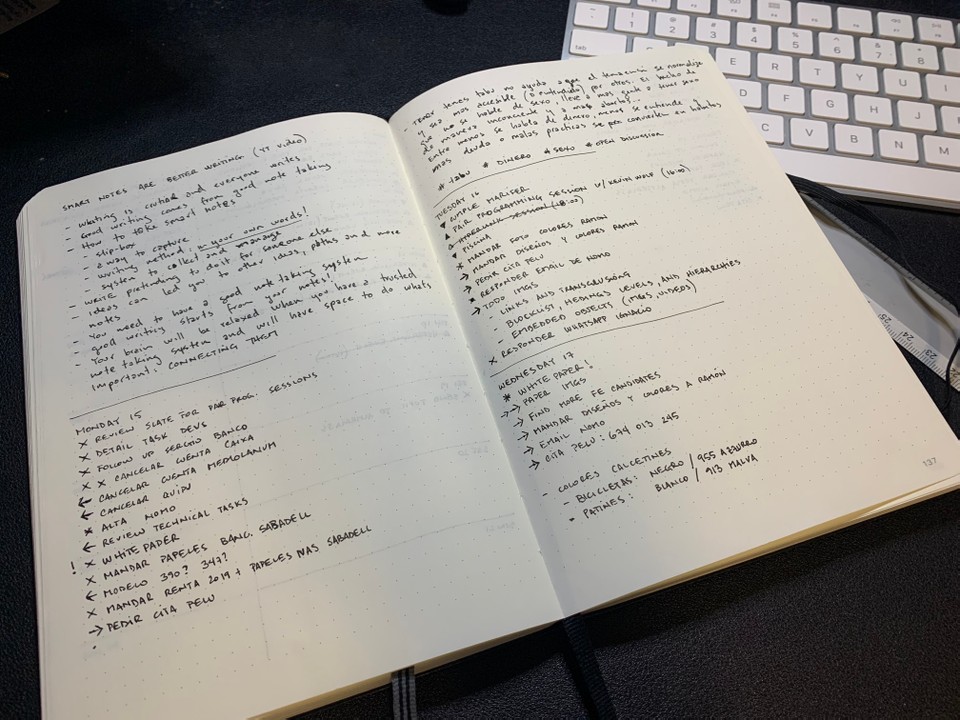 SMART NOTES ARE BETTER WRITING (YT VIDEO)
- writing is crutial and everyone writes
- Good writing comes from good note taking
- How to take smart notes
- slip-box
- a way to capture
- writing method, in your own words!
- system to collect and manage
- write pretending to do it for someone else
- ideas can led you to other ideas, paths and more
notes
- You need to have a good note taking system
- good writing starts from your notes!
- Your brain will be relaxed when you have a trusted
note taking system and will have space to do what's
important: CONNECTING THEM
MONDAY 15
× REVIEW SLATE FOR PAIR PROG. SESSIONS
× DETAIL TASK DEVS
× FOLLOW UP SERGIO BANCO
× × CANCELAR CUENTA CAIXA
← CANCELAR CUENTA MEDIOLANUM
← CANCELAR QUIPU
× ALTA NOMO
← REVIEW TECHNICAL TASKS
! × WHITE PAPER
× MANDAR PAPELES BANC. SABADELL
← MODELO 390? 347?
× MANDAR RENTA 2019 + PAPELES MAS SABADELL
→ PEDIR CITA PELU
- TENER temas tabu no ayuda a que el tema en sí se normalice
y sea más accesible (o entendido) por otros. El hecho de
que no se hable de sexo, lleva a más gente a tener sexo
de manera inconsciente y más abortos...
Entre menos se habla de dinero, menos se entiende, y
más deuda o malas practicas se convierten en hábitos
# tabu # DINERO # SEXO # OPEN DISCUSSION
TUESDAY 16
CUMPLE MARIFER
PAIR PROGRAMMING SESSION W/ KEVIN WOLF (16:00)
SESSION (18:00)
PISCINA
× MANDAR FOTO COLORES RAMON
→ MANDAR DISEÑOS Y COLORES RAMÓN
→ PEDIR CITA PELU
× RESPONDER EMAIL DE NOMO
→ TODO IMGS
- LINKS AND TRANSCLUSIONS
- BLOCKLIST, HEDINGS LEVELS, AND HIERARCHIES
- EMBEDDED OBJECTS (IMGS, VIDEOS)
× RESPONDER WHATSAPP IGNACIO
WEDNESDAY 17
* WHITE PAPER!
→ → PAPER IMGS
→ FIND MORE FE CANDIDATES
→ MANDAR DISEÑOS Y COLORES A RAMÓN
→ EMAIL NOMO
→ CITA PELU: 674 013 245
- COLORES CALCETINES
- BICICLETAS: NEGRO / 955 AZZURRO
- PATINES: BLANCO / 913 MALVA
137